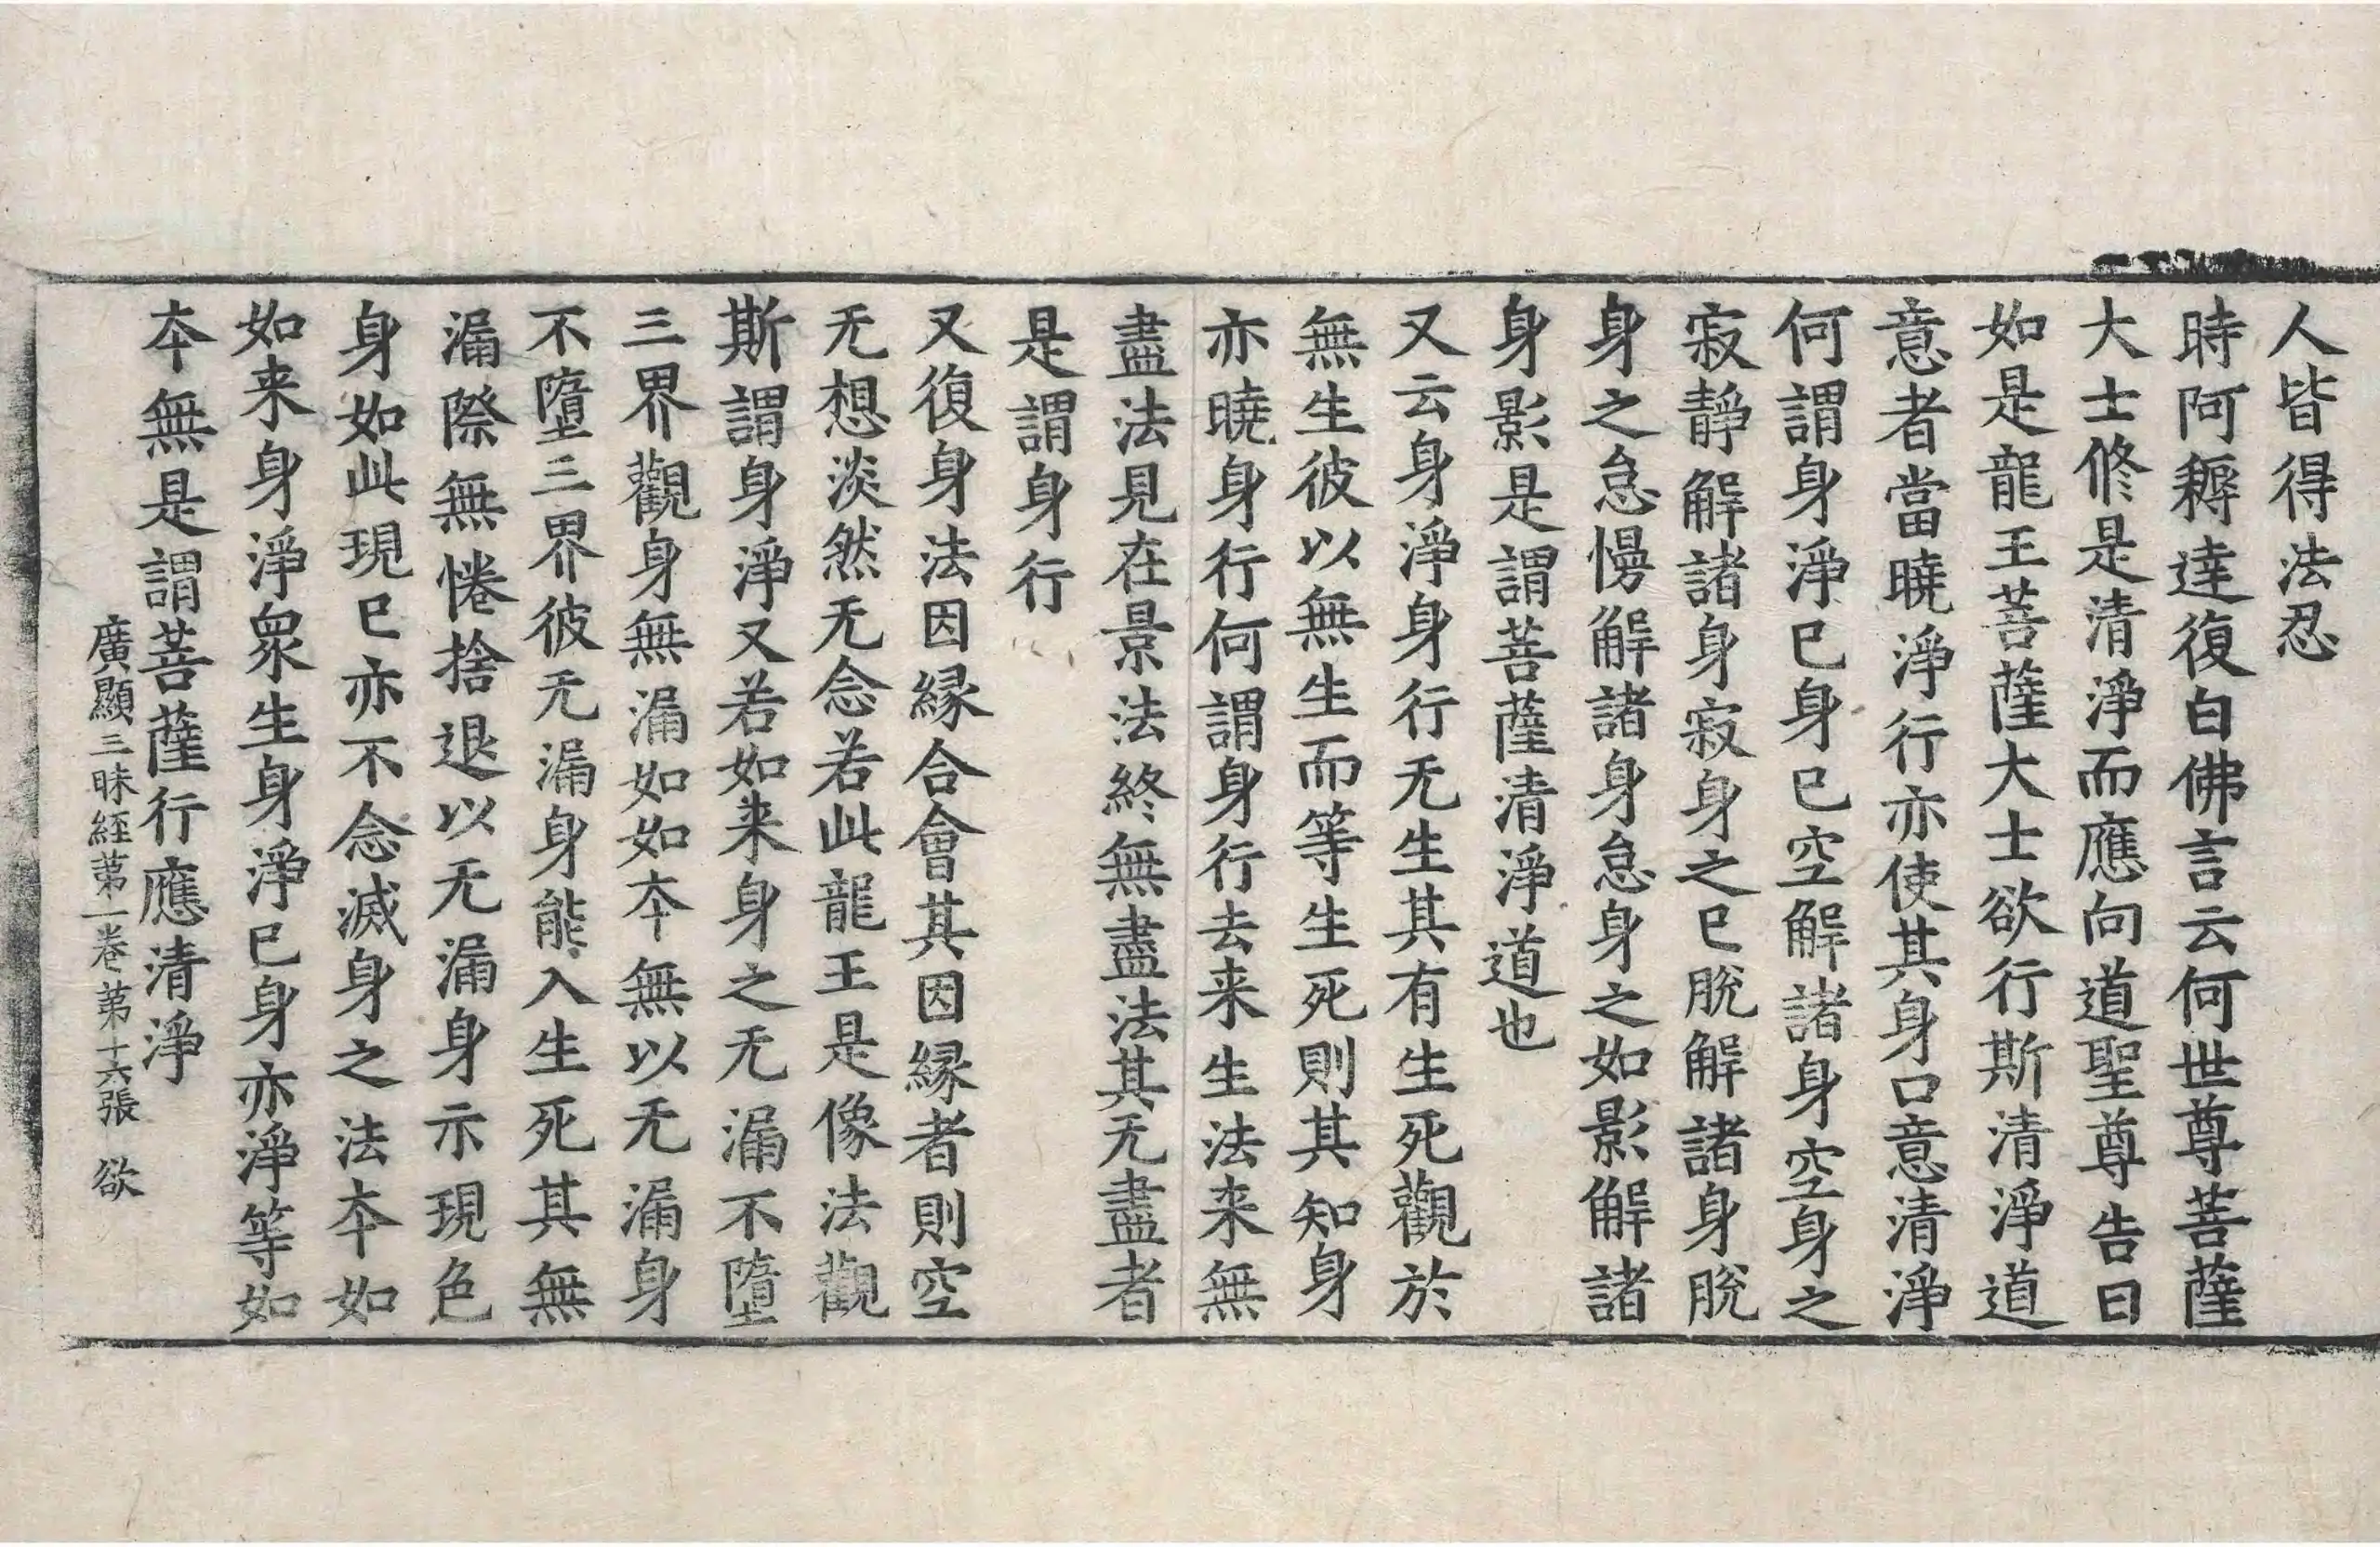 人皆得法忍
時阿耨達復白佛言云何世尊菩薩
大士修是清淨而應向道聖尊告曰
如是龍王菩薩大士欲行斯清淨道
意者當曉淨行亦使其身口意清淨
何謂身淨已身已空解諸身空身之
寂靜解諸身寂身之已脫解諸身脫
身之怠慢解諸身怠身之如影解諸
身影是謂菩薩清淨道也
又云身淨身行无生其有生死觀於
無生彼以無生而等生死則其知身
亦曉身行何謂身行去来生法来無
盡法見在景法終無盡法其无盡者
是謂身行
又復身法因緣合會其因緣者則空
无想淡然无念若此龍王是像法觀
斯謂身淨又若如来身之无漏不墮
三界觀身無漏如如夲無以无漏身
不墮三界彼无漏身能入生死其無
漏際無惓捨退以无漏身示現色
身如此現已亦不念滅身之法夲如
如来身淨衆生身淨已身亦淨等如
夲無是謂菩薩行應清淨
廣顯三昧經苐一卷苐十六張 欲